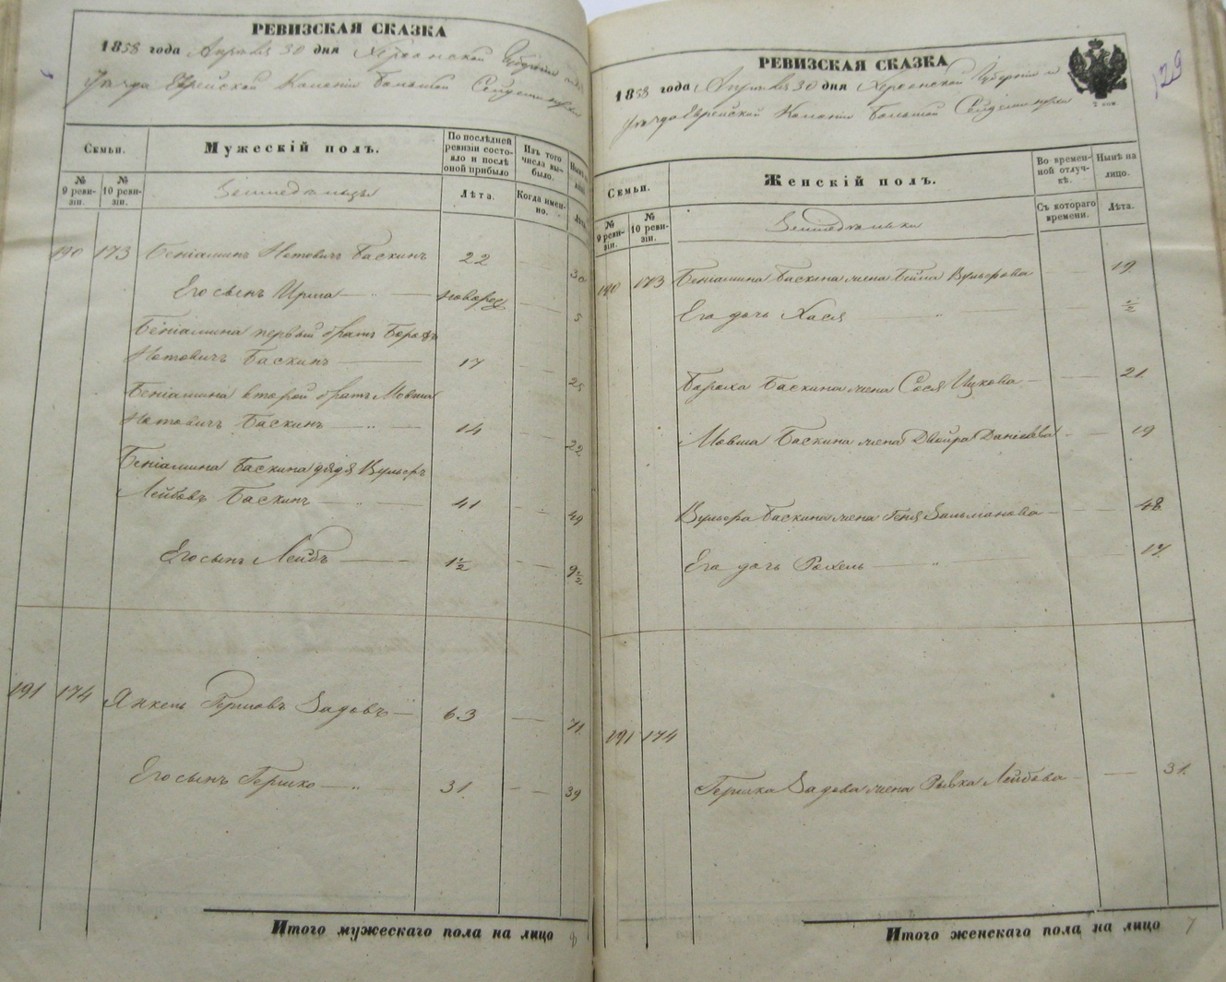 РЕВИЗСКАЯ СКАЗКА
1858 года Апреля 30 дня Херсонской Губернии и
Уѣзда Еврейской Колоніи Большой Сейдеминухи
Семьи.
Мужескій полъ.
По послѣдней ревизіи состояло и послѣ оной прибыло
Изъ того числа выбыло.
№ 9 ревизіи.
№ 10 ревизіи.
Земледѣльцы
Лѣта.
Когда именно.
190 173 Беніаминъ Нотовичъ Баскинъ 22 30
Его сынъ Ирша новорож 5
Беніамина первый братъ Борохъ
Нотовичъ Баскинъ 17 25
Беніамина второй братъ Мовша
Нотовичъ Баскинъ 14 22
Беніамина Баскина дядя Вульфъ
Лейбовъ Баскинъ 41 49
Его сынъ Лейбъ 1½ 9½
191 174 Янкель Гершовъ Задовъ 63 71
Его сынъ Гершко 31 39
Итого мужескаго пола на лицо
РЕВИЗСКАЯ СКАЗКА
129
1858 года Апреля 30 дня Херсонской Губерніи и
Уѣзда Еврейской Колоніи Большой Сейдеминухи
Семьи.
Женскій полъ.
Во временной отлучкѣ.
Нынѣ на лицо.
№ 9 ревизіи.
№ 10 ревизіи.
Земледѣльки
Съ котораго времени.
Лѣта.
190 173 Беніамина Баскина жена Бейла Вульфова 19
Его дочь Хася ½
Бороха Баскина жена Сося Ицкова 21
Мовша Баскина жена Двейра Даніелова 19
Вульфа Баскина жена Геня Зальманова 48
Его дочь Рохель 17
191 174
Гершка Задова жена Рывка Лейбова 31
Итого женскаго пола на лицо 7